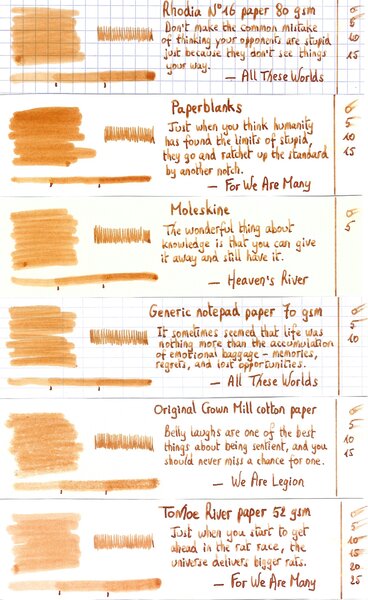 Rhodia N°16 paper 80 gsm
Don't make the common mistake
of thinking your opponents are stupid
just because they don't see things
your way.
— All These Worlds
5
10
15
Paperblanks
Just when you think humanity
has found the limits of stupid,
they go and ratchet up the standard
by another notch.
— For We Are Many
5
10
15
Moleskine
The wonderful thing about
knowledge is that you can give
it away and still have it.
— Heaven's River
5
Generic notepad paper 70 gsm
It sometimes seemed that life was
nothing more than the accumulation
of emotional baggage – memories,
regrets, and lost opportunities.
— All These Worlds
5
10
Original Crown Mill cotton paper
Belly laughs are one of the best
things about being sentient, and you
should never miss a chance for one.
— We Are Legion
5
10
15
Tomoe River paper 52 gsm
Just when you start to get
ahead in the rat race, the
universe delivers bigger rats.
— For We Are Many
5
10
15
20
25